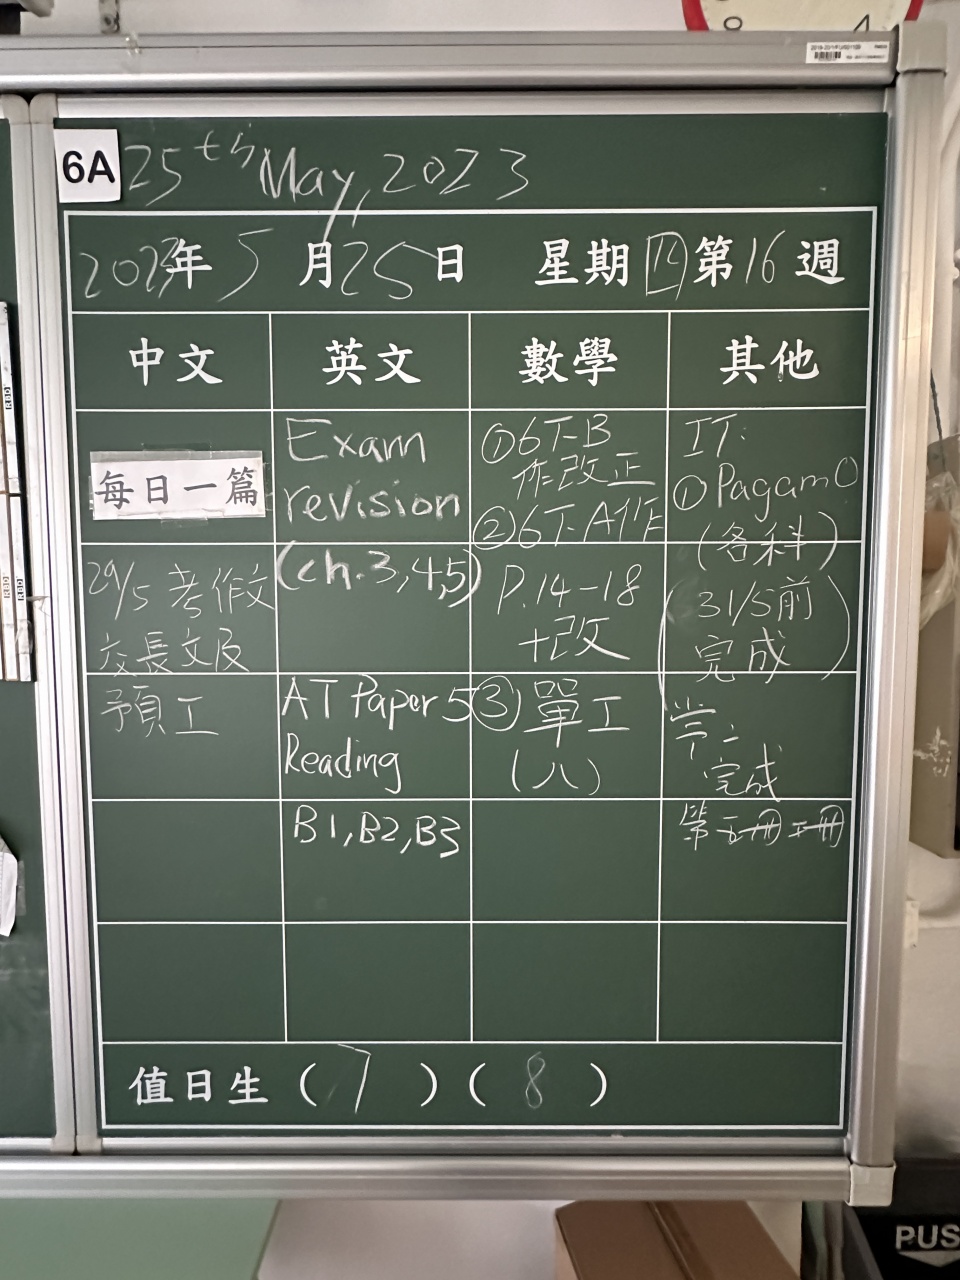 6A
25th May, 2023
2023年 5 月 25 日 星期 四 第 16 週
中文
英文
數學
其他
每日一篇
29/5 考作文
交長文及
預工
Exam
revision
(ch.3,4,5)
AT Paper 5
Reading
B1, B2, B3
①6下B
作改正
②6下A作
P.14-18
+改
③單工
(八)
IT:
①PagamO
(各科)
(31/5前
完成)
完成
值日生 ( 7 ) ( 8 )
PUS